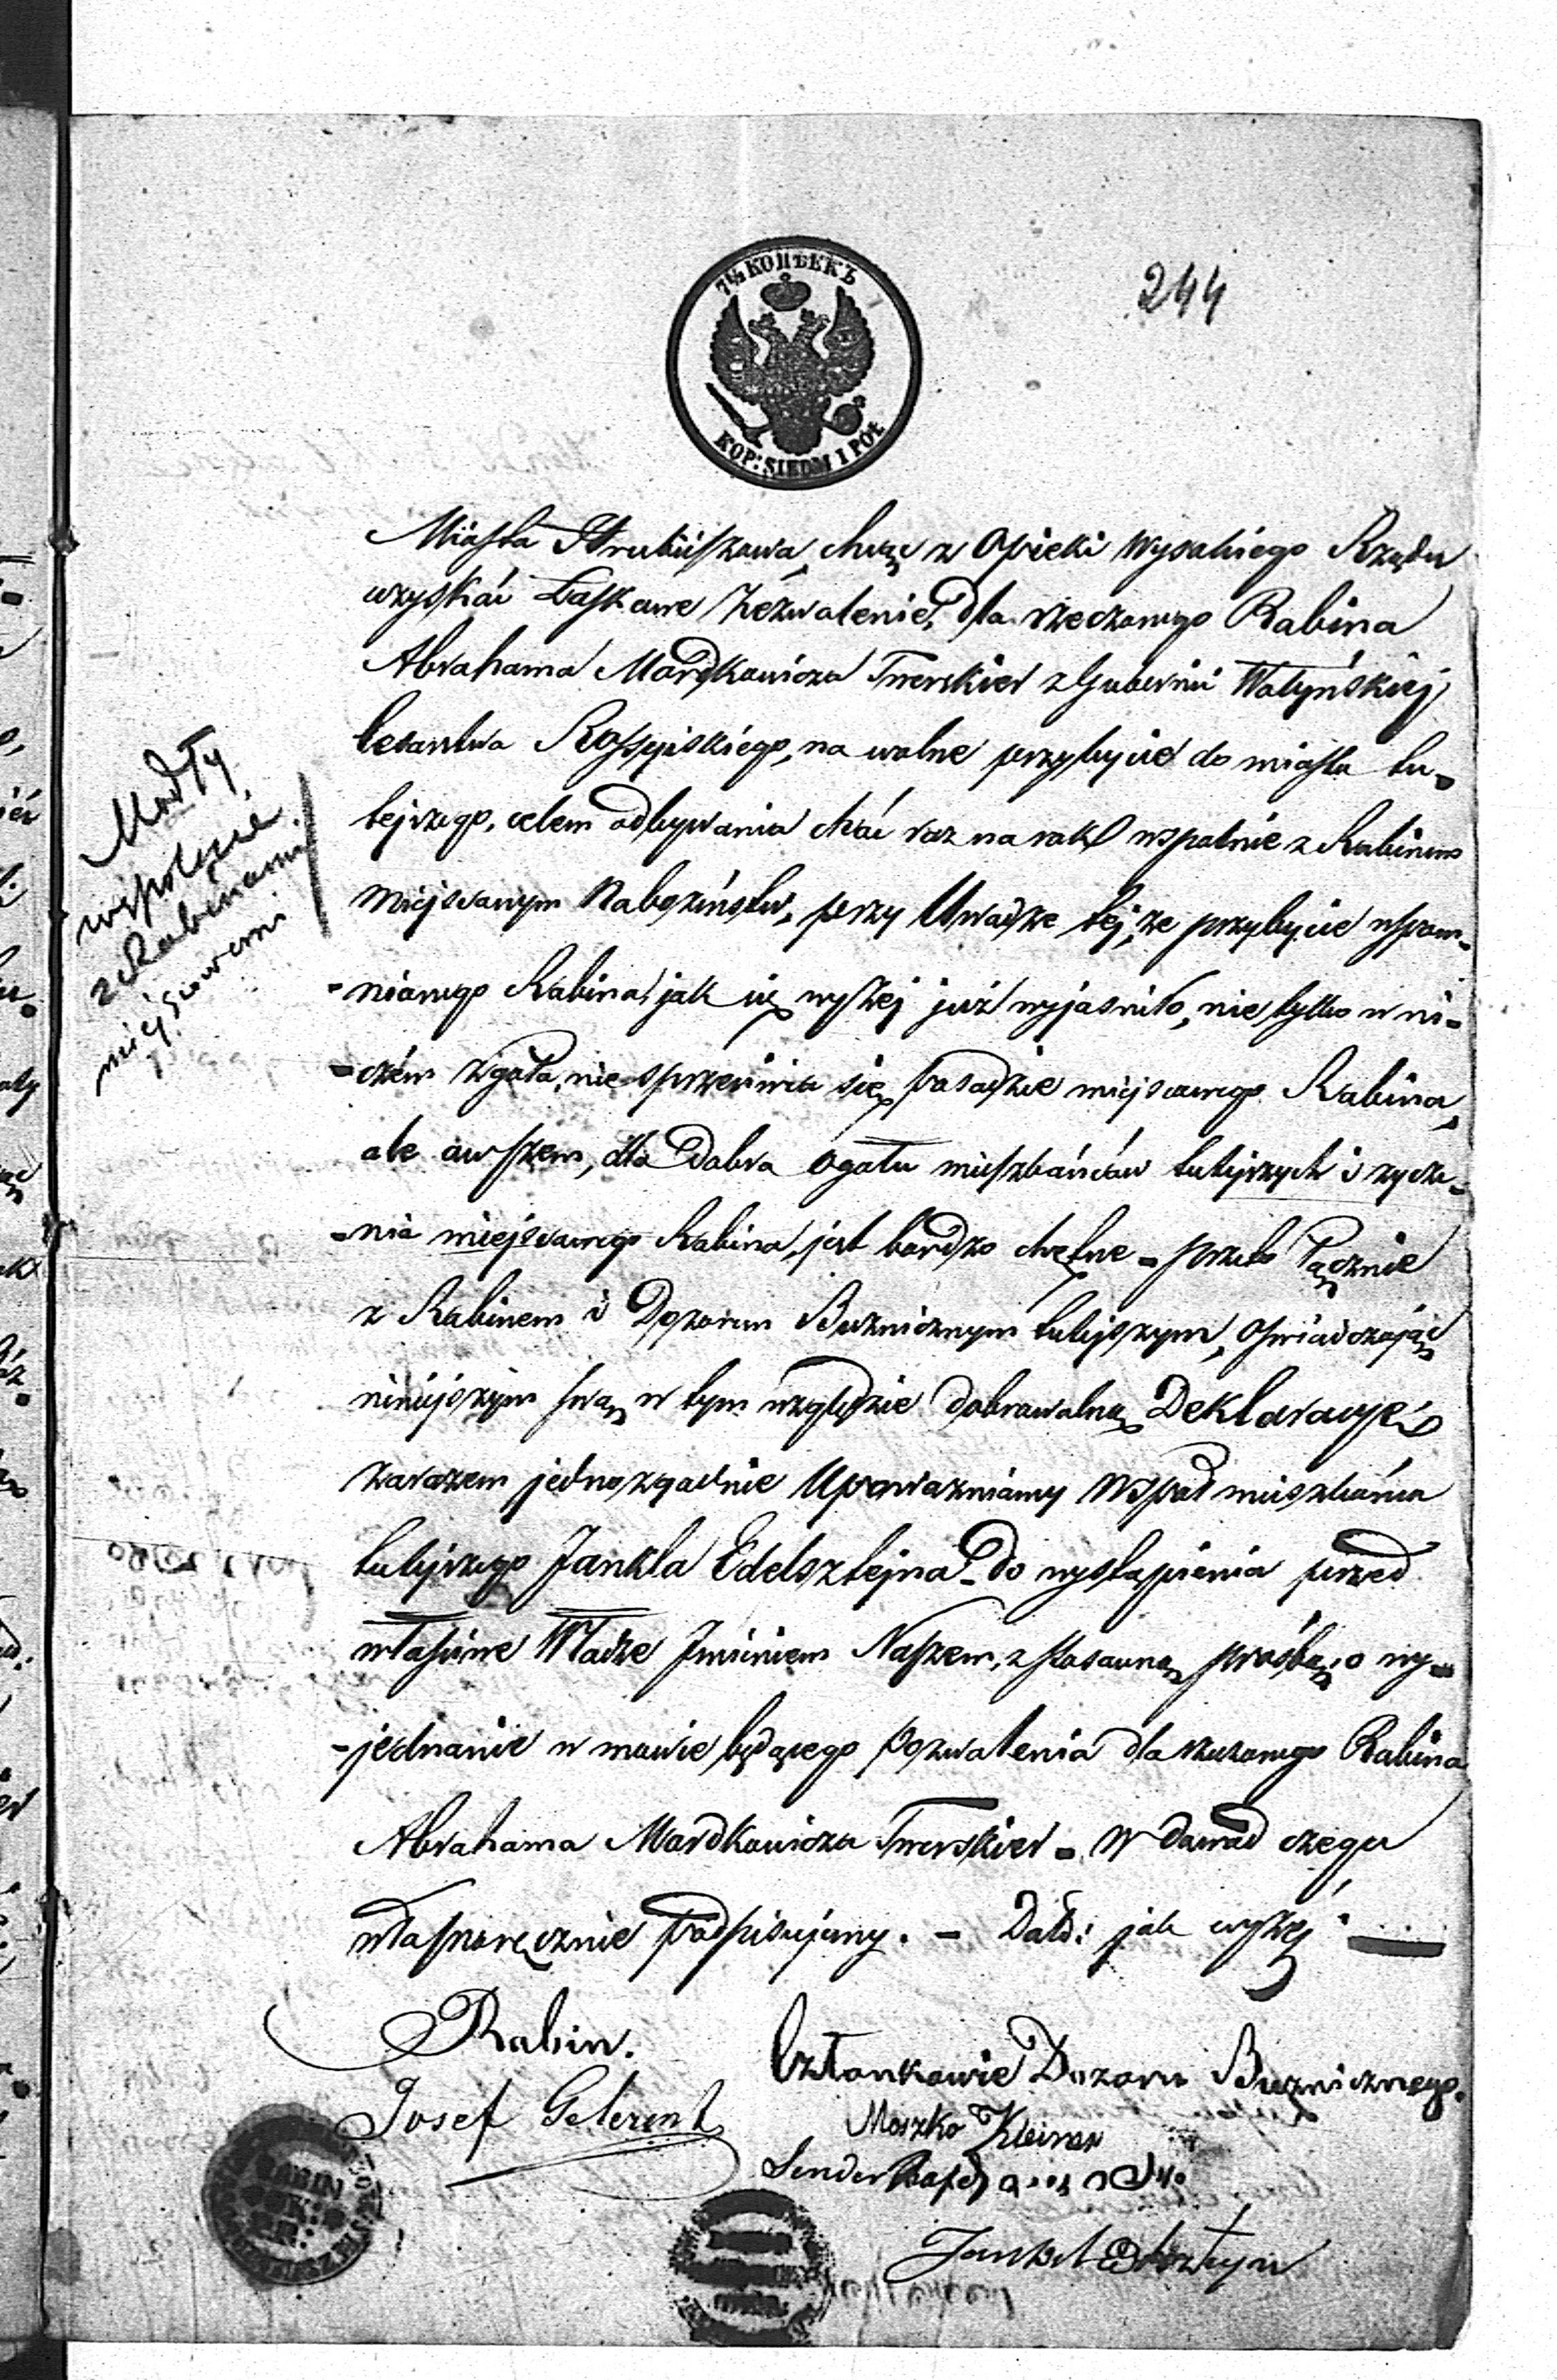 244
7½ КОПѢЕКЪ
KOP: SIEDM I PÓŁ
Miasta Hrubieszowa, chcąc z Opieki Wysokiego Rządu
uzyskać Łaskawe Zezwolenie, dla rzeczonego Rabina
Abrahama Mordkowicza Twerskier z Gubernii Wołyńskiej
Cesarstwa Rossyiskiego, na wolne przybycie do miasta tu-
tejszego, celem odbywania choć raz na rok wspólnie z Rabinem
miejscowym Nabożeństw, przy Uwadze tej, że przybycie wspom-
-nionego Rabina, jak się wyżej już wyjaśniło, nie tylko w ni-
-czém zgoła, nie sprzeciwia się posadzie miejscowego Rabina,
ale owszem, dla dobra ogółu mieszkańców tutejszych i życze-
-nia miejscowego Rabina, jest bardzo chętne - przeto łącznie
z Rabinem i Dozorem Bużnicznym tutejszym, oświadczając
niniejszym swą w tym względzie dobrowolną Deklaracyę
zarazem jednozgodnie Upoważniamy Współmieszkańca
tutejszego Jankla Edelsztejna - do wystąpienia przed
właściwe Władze Imieniem Naszem, z stosowną prośbą, o wy-
-jednanie w mowie będącego pozwolenia dla rzeczonego Rabina
Abrahama Mordkowicza Twerskier - W dowód czego
własnoręcznie podpisujemy. - Datt: jak wyżej
Modły
wspólnie
z Rabinami
miejscowemi
Rabin.
Josef Gelernt
Członkowie Dozoru Bużnicznego.
Moszko Kleiner
Sender
Jankel Edelsztejn
RABIN